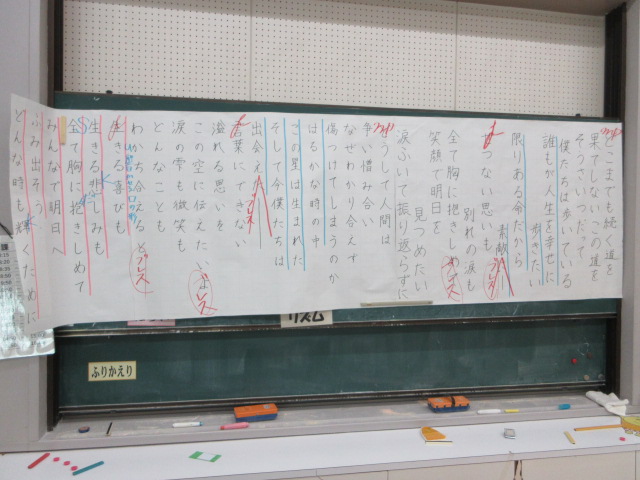 どこまでも続く道を
果てしない この道を
そうさいつだって
僕たちは歩いている
誰もが人生を幸せに
歩きたい
限りある命だから
素敵
せつない思いも
別れの涙も
全て胸に抱きしめ
笑顔で明日を
見つめたい
涙ふいて振り返らずに
どうして人間は
争い憎み合い
なぜわかり合えず
傷つけてしまうのか
はるかな時の中
この星は生まれた
そして今僕たちは
出会えた
言葉にできない
溢れる思いを
この空に伝えたいよ
涙の雫も微笑も
どんなことも
わかち合えると
生きる喜びも
生きる悲しみも
全て胸に抱きしめて
みんなで明日へ
ふみ出そう
どんな時も輝くために
ブレス
ブレス
ブレス
ブレス
リズム
ふりかえり